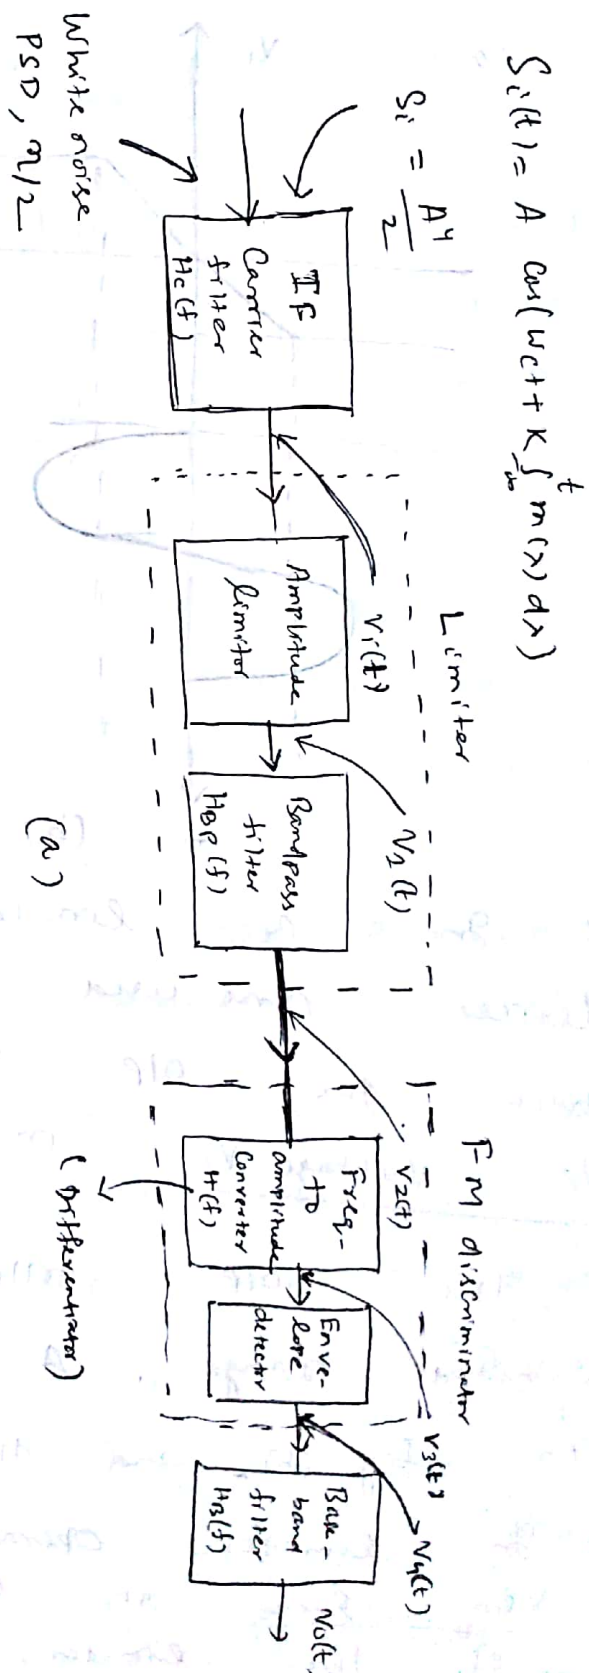 Si(t) = A cos(Wct + K ∫ m(λ) dλ)
t
-∞
Si = A⁴/2
White noise
PSD, η/2
IF
Carrier
filter
Hc(f)
Vi(t)
Limiter
Amplitude
limitor
V1(t)
Bandpass
filter
HBP(f)
V2(t)
FM discriminator
Freq-
to
amplitude
Converter
H(f)
(Differentiator)
V3(t)
Enve-
lope
detector
V4(t)
Base-
band
filter
HB(f)
Vo(t)
(a)